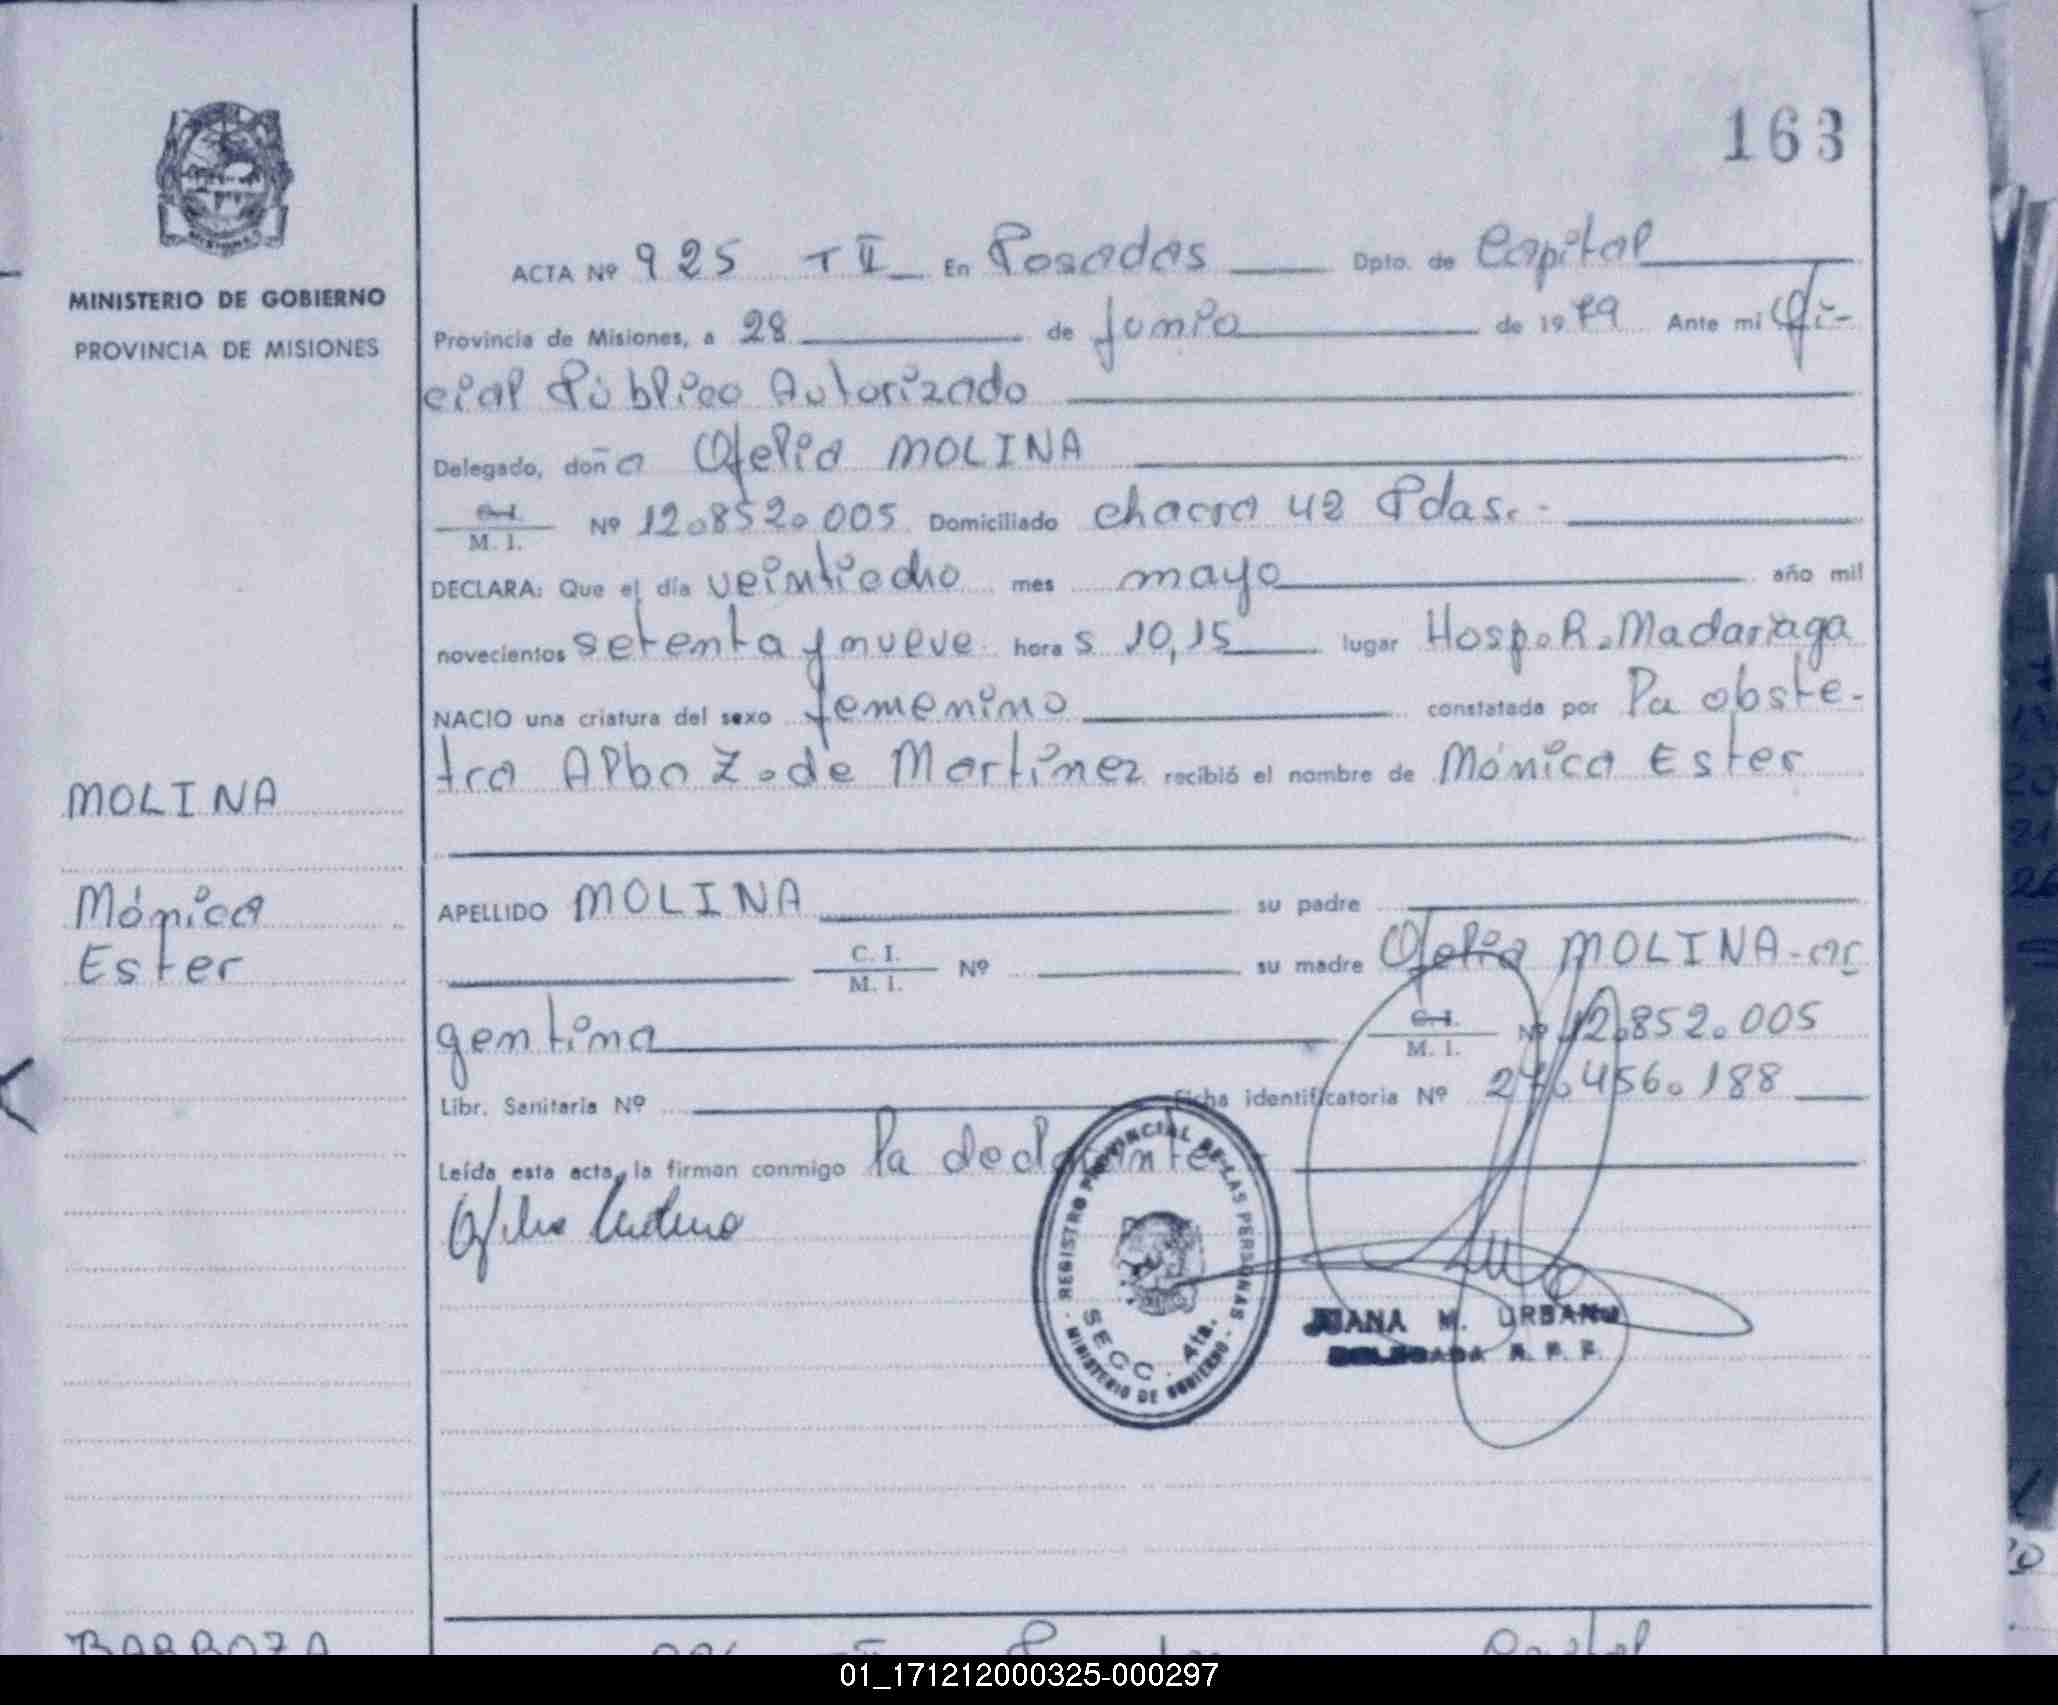 163
MINISTERIO DE GOBIERNO
PROVINCIA DE MISIONES
MOLINA
Mónica
Ester
ACTA Nº 925 T II En Posadas Dpto. de Capital
Provincia de Misiones, a 28 de junio de 1979 Ante mi Ofi-
cial Público Autorizado
Delegado, doña Ofelia MOLINA
C.I. / M. I. Nº 12.852.005 Domiciliado chacra 42 Pdas.-
DECLARA: Que el día veintiocho mes mayo año mil
novecientos setenta y nueve hora s 10,15 lugar Hosp. R. Madariaga
NACIO una criatura del sexo femenino constatada por la obste-
tra Alba Z. de Martinez recibió el nombre de Mónica Ester
APELLIDO MOLINA su padre
C. I. / M. I. Nº su madre Ofelia MOLINA-ar
gentina C.I. / M. I. Nº 12.852.005
Libr. Sanitaria Nº Ficha identificatoria Nº 27.456.188
Leída esta acta, la firman conmigo la declarante
REGISTRO PROVINCIAL DE LAS PERSONAS
SECC. 4ta.
MINISTERIO DE GOBIERNO
JUANA M. URBANO
DELEGADA R. P. P.
BARBOZA
01_171212000325-000297